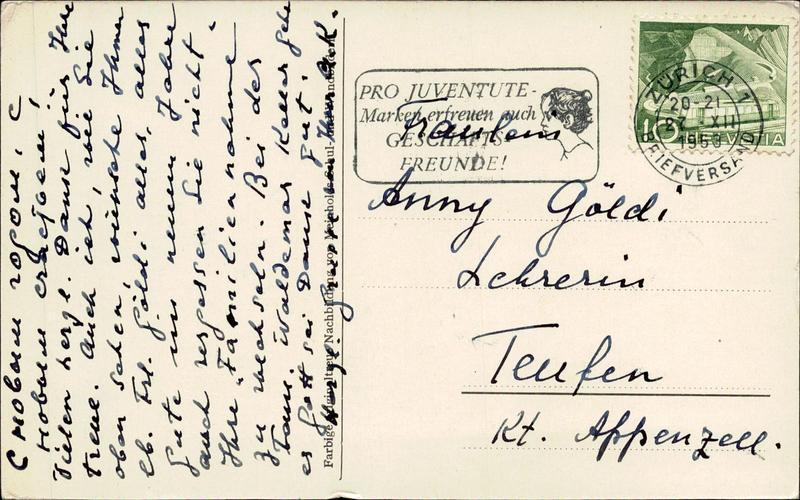 С новым годом, с
новым счастьем!
Vielen herzl. Dank für Ihre
treue. Auch ich, wie Sie
oben sehen, wünsche Ihnen
lb. Frl. Göldi alles, alles
Gute im neuen Jahre
auch vergessen Sie nicht
Ihre "Familien nahme"
zu wechseln. Bei der
Fam. Waldemar Keller geht
es Gott sei Dank gut!
Herzl. Gruss Ihr
Farbige Originaltreue Nachbildung von Meinholds
PRO JUVENTUTE-
Marken erfreuen auch
GESCHÄFTS-
FREUNDE!
ZÜRICH 1
20-21
27. XII
1953
BRIEFVERSAND
15 HELVETIA
Fräulein
Anny Göldi
Lehrerin
Teufen
Kt. Appenzell.